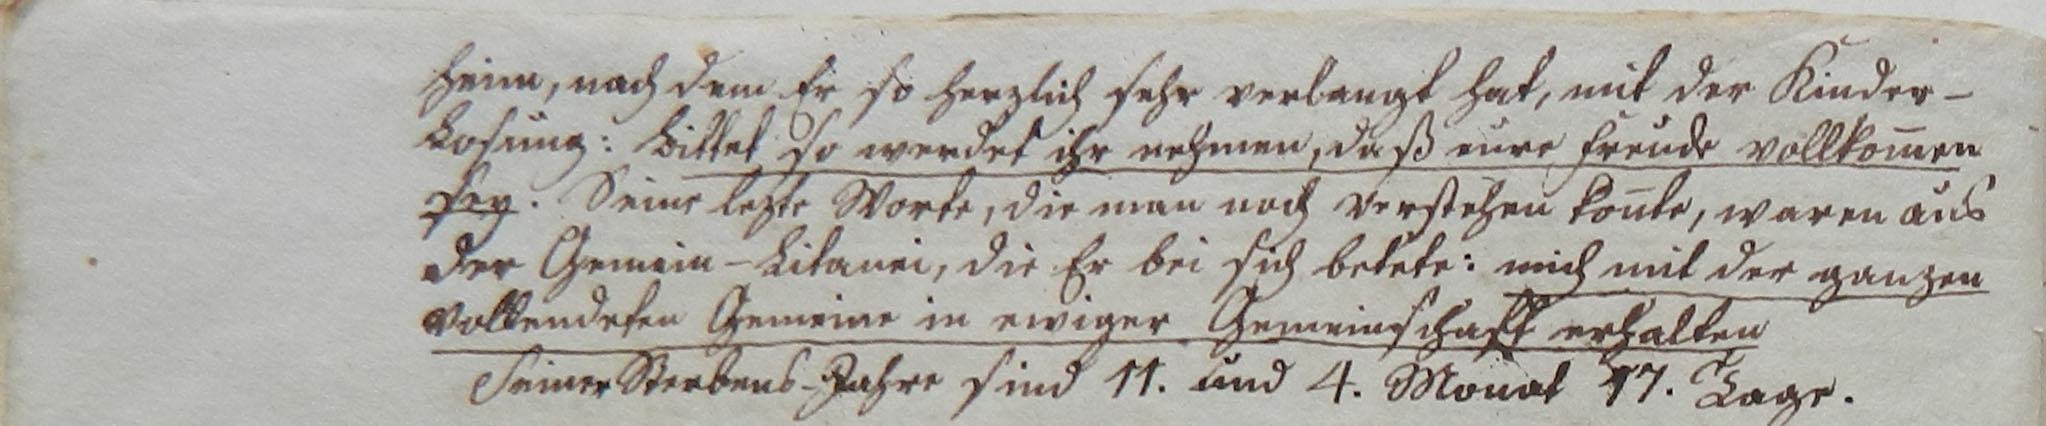 heim, nach dem Er so herzlich sehr verlangt hat, mit der Kinder-
Losung: Bittet so werdet ihr nehmen, daß eure Freude vollkom̅en
sey. Seine lezte Worte, die man noch verstehen kon̅te, waren aus
der Gemein-Litanei, die Er bei sich betete: mich mit der ganzen
vollendeten Gemeine in ewiger Gemeinschafft erhalten
Seiner Sterbens-Jahre sind 11. und 4. Monat 17. Tage.